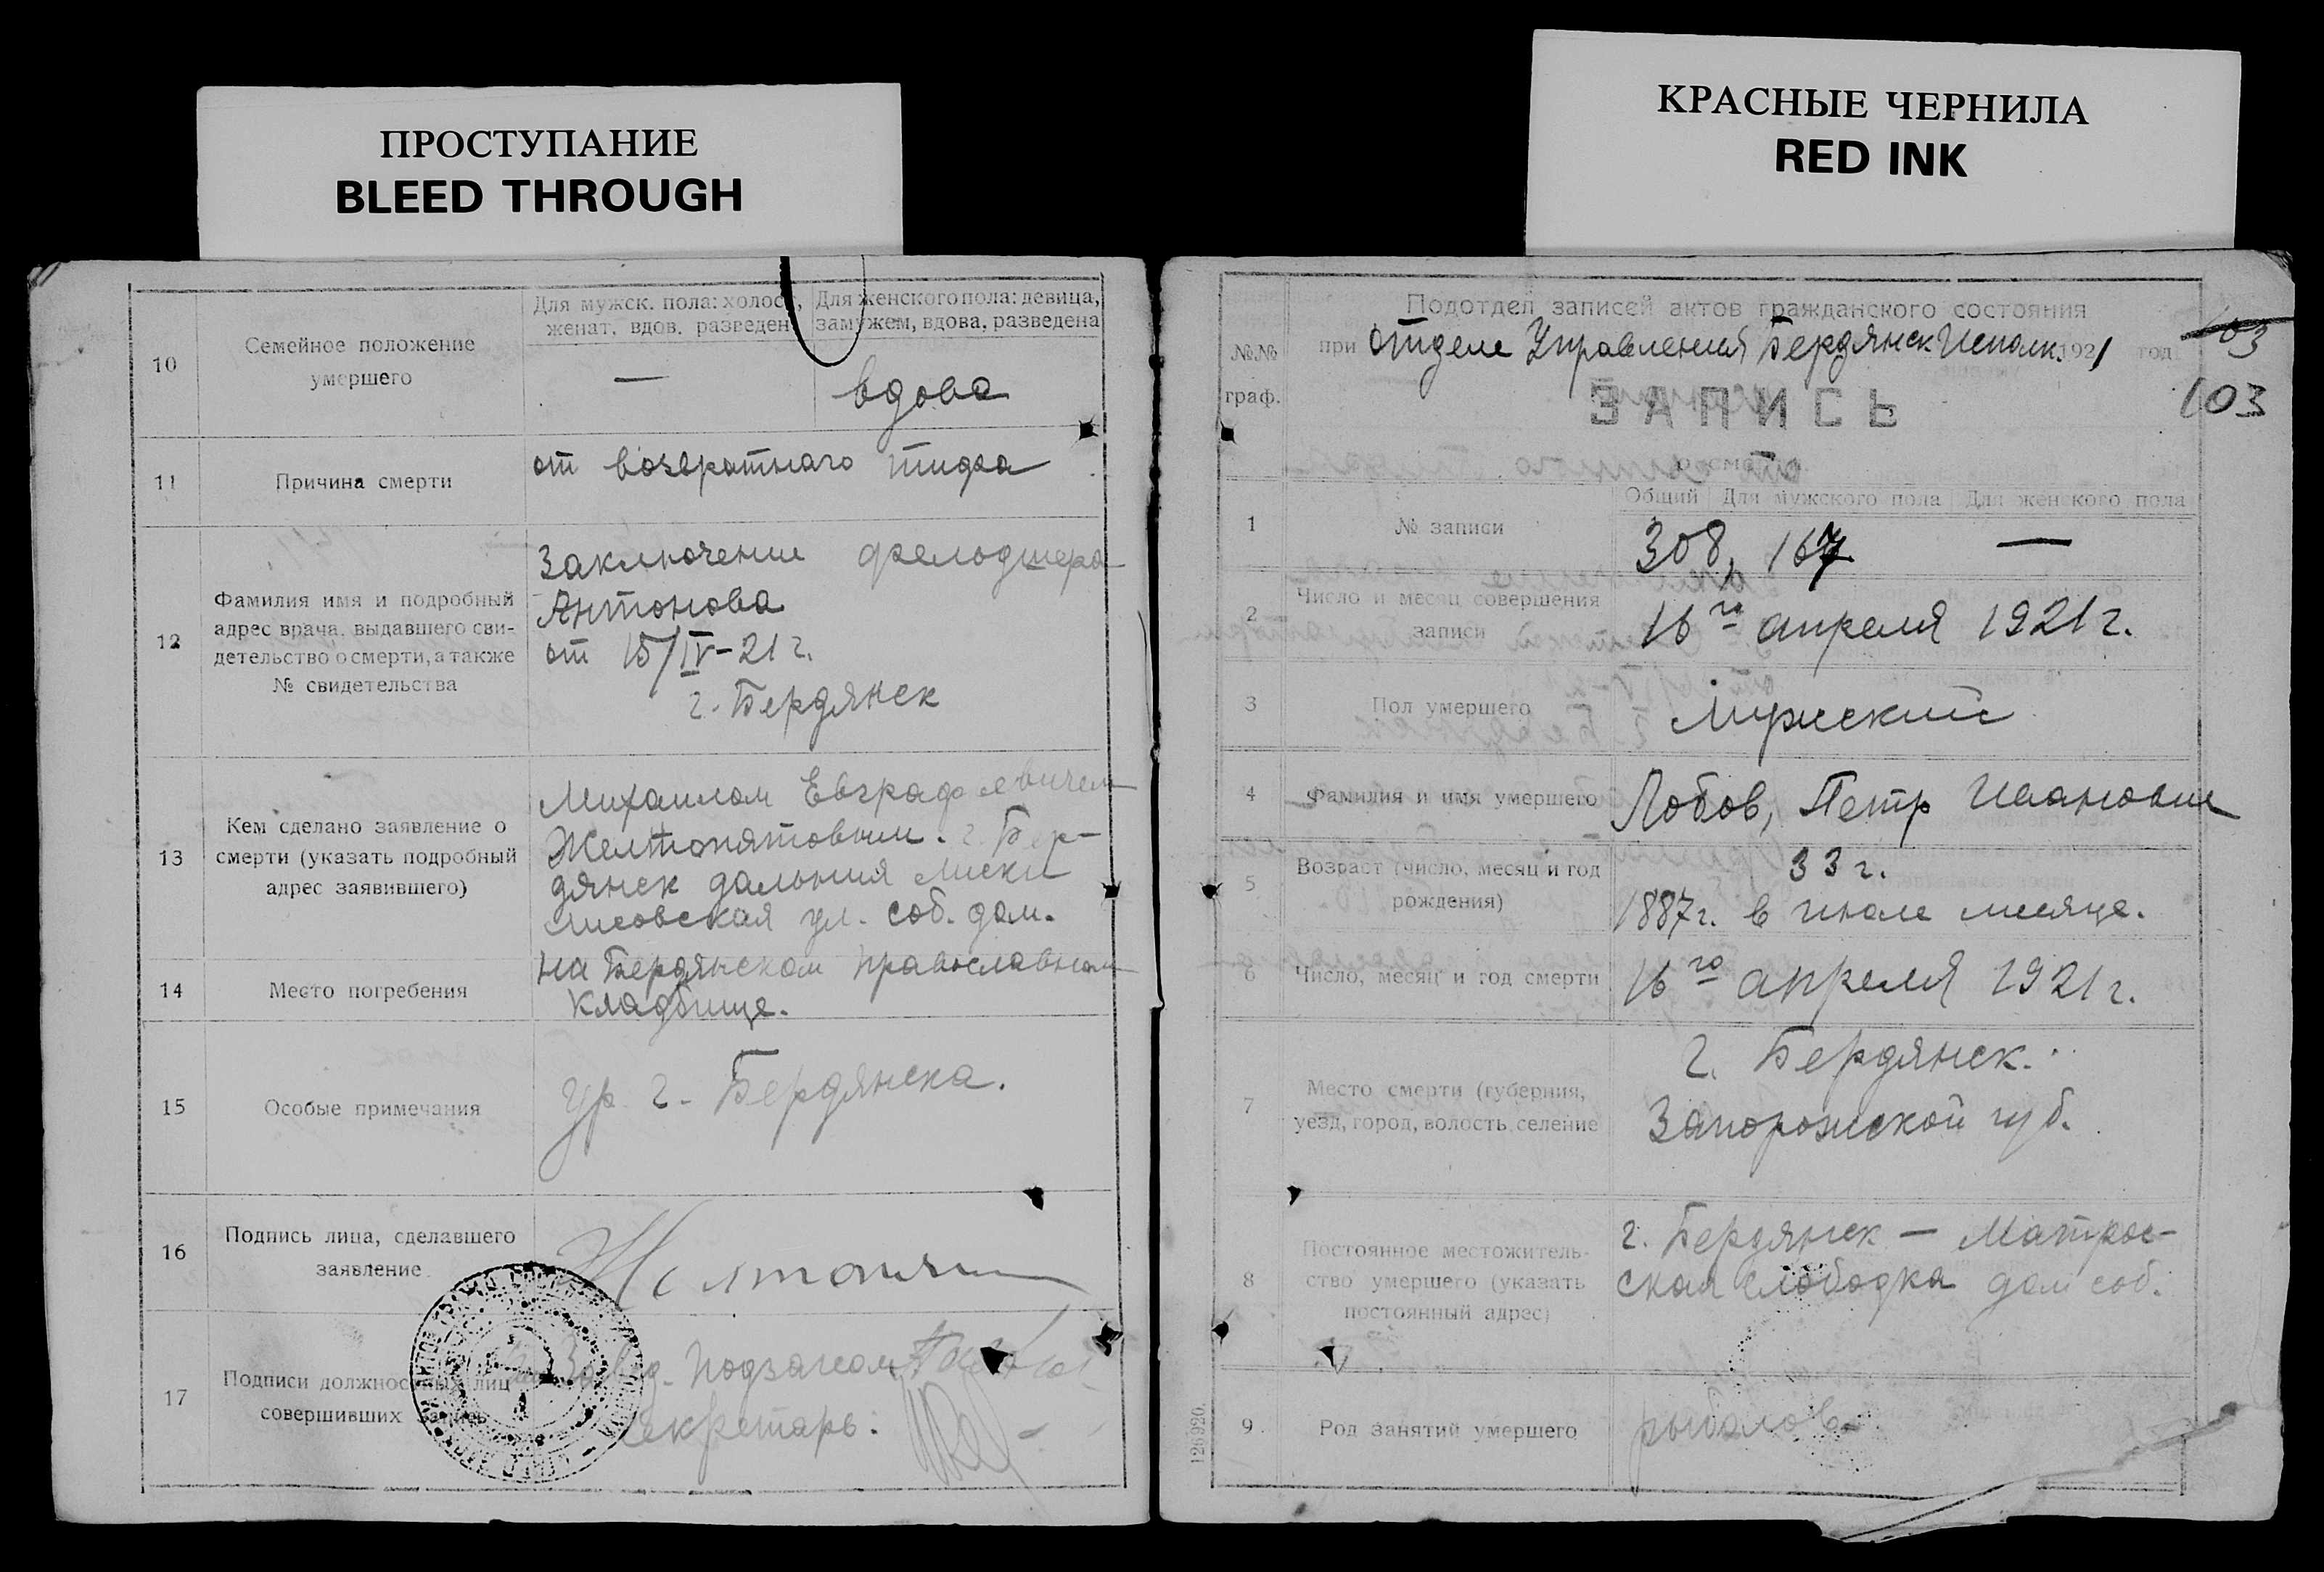 ПРОСТУПАНИЕ
BLEED THROUGH
КРАСНЫЕ ЧЕРНИЛА
RED INK
10
Семейное положение
умершего
Для мужск. пола: холост,
женат, вдов, разведен
Для женского пола: девица,
замужем, вдова, разведена
—
вдова
11
Причина смерти
от возвратного тифа
12
Фамилия имя и подробный
адрес врача, выдавшего сви-
детельство о смерти, а также
№ свидетельства
Заключение фельдшера
Антонова
от 15/IV-21 г.
г. Бердянск
13
Кем сделано заявление о
смерти (указать подробный
адрес заявившего)
Михаилом Евграфовичем
Желтопятовым. г. Бер-
дянск дальния лиски
лисовская ул. соб. дом.
14
Место погребения
на Бердянском православном
кладбище.
15
Особые примечания
Ур. г. Бердянска.
16
Подпись лица, сделавшего
заявление
17
Подписи должностных лиц
совершивших запись
Завед. Подзагсом
Секретарь:
№№
граф.
Подотдел записей актов гражданского состояния
при Отделе Управления Бердянск. Исполк. 1921 год
103
103
ЗАПИСЬ
о смерти
1
№ записи
Общий
Для мужского пола
Для женского пола
308, 167 —
2
Число и месяц совершения
записи
16го апреля 1921 г.
3
Пол умершего
Мужский
4
Фамилия и имя умершего
Лобов, Петр Иванович
5
Возраст (число, месяц и год
рождения)
33 г.
1887 г. в июле месяце.
6
Число, месяц и год смерти
16го апреля 1921 г.
7
Место смерти (губерния,
уезд, город, волость, селение
г. Бердянск.
Запорожской губ.
8
Постоянное местожитель-
ство умершего (указать
постоянный адрес)
г. Бердянск — Матрос-
ская слободка дом соб.
9
Род занятий умершего
рыболов
126920.